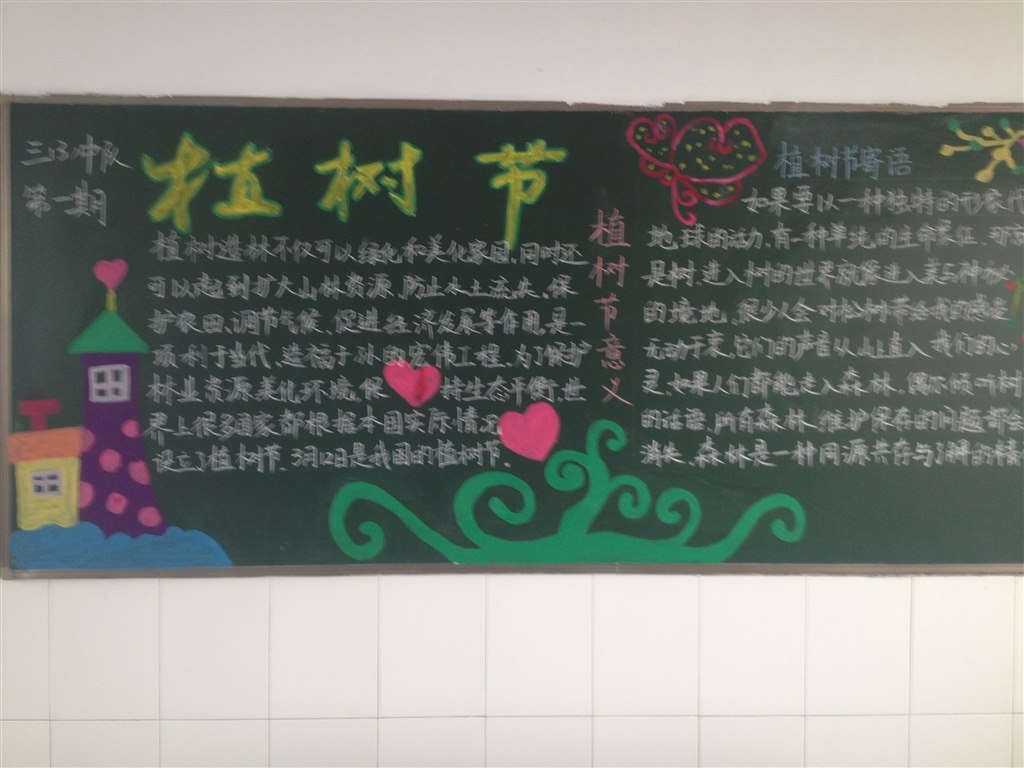 三(3)中队
第一期
植树节
植树造林不仅可以绿化和美化家园,同时还
可以起到扩大山林资源、防止水土流失、保
护农田、调节气候、促进经济发展等作用,是一
项利于当代、造福子孙的宏伟工程。为了保护
林业资源美化环境,保 持生态平衡,世
界上很多国家都根据本国实际情况
设立了植树节、3月12日是我国的植树节。
植树节意义
植树节寄语
如果要以一种独特的形象代
地球的活力,有一种单纯的生命象征,
是树,进入树的世界就像进入
的境地,很少人会对植树节给我的感
无动于衷,它们的声音从 直入我们的心
灵,如果人们都能走入森林,偶尔倾听树
的话语,所有森林维护保存的问题都会
消失,森林是一种同源共存与